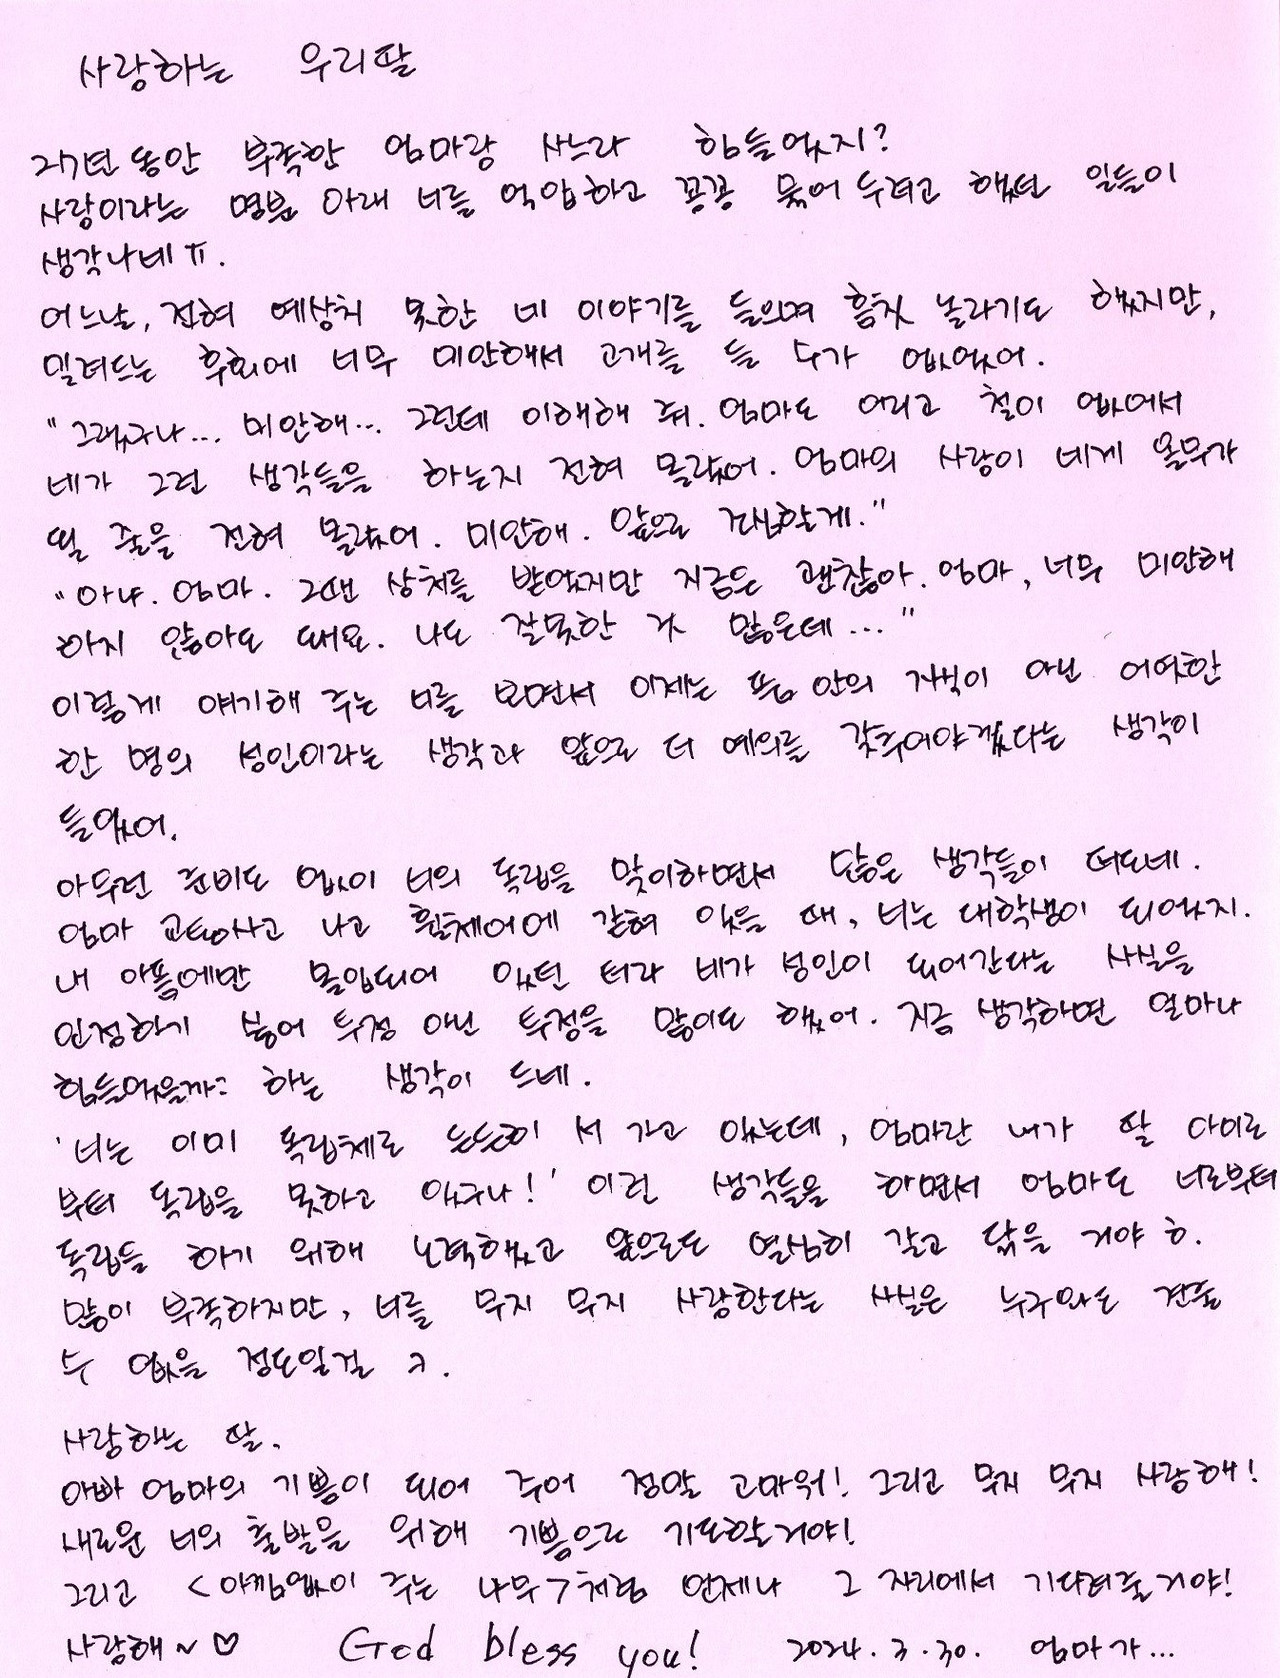 사랑하는 우리딸
27년 동안 부족한 엄마랑 사느라 힘들었지?
사랑이라는 명분 아래 너를 억압하고 꽁꽁 묶어 두려고 했던 일들이
생각나네 ㅠ.
어느날, 전혀 예상치 못한 네 이야기를 들으며 흠칫 놀라기도 했지만,
밀려드는 후회에 너무 미안해서 고개를 들 수가 없었어.
"그랬구나... 미안해... 그런데 이해해 줘. 엄마도 어리고 철이 없어서
네가 그런 생각들을 하는지 전혀 몰랐어. 엄마의 사랑이 네게 올무가
될 줄을 전혀 몰랐어. 미안해. 앞으로 조심할게."
"아냐. 엄마. 그땐 상처를 받았지만 지금은 괜찮아. 엄마, 너무 미안해
하지 않아도 돼요. 나도 잘못한 거 많은데..."
이렇게 얘기해 주는 너를 보면서 이제는 품 안의 자식이 아닌 어엿한
한 명의 성인이라는 생각과 앞으로 더 예의를 갖추어야겠다는 생각이
들었어.
아무런 준비도 없이 너의 독립을 맞이하면서 많은 생각들이 떠도네.
엄마 교통사고 나고 휠체어에 갇혀 있을 때, 너는 대학생이 되었지.
내 아픔에만 몰입되어 있던 터라 네가 성인이 되어간다는 사실을
인정하기 싫어 투정 아닌 투정을 많이도 했어. 지금 생각하면 얼마나
힘들었을까? 하는 생각이 드네.
'너는 이미 독립체로 든든히 서 가고 있는데, 엄마란 내가 딸 아이로
부터 독립을 못하고 있구나!' 이런 생각들을 하면서 엄마도 너로부터
독립을 하기 위해 노력했고 앞으로도 열심히 갈고 닦을 거야 ㅎ.
많이 부족하지만, 너를 무지 무지 사랑한다는 사실은 누구와도 견줄
수 없을 정도일걸 ㅋ.
사랑하는 딸.
아빠 엄마의 기쁨이 되어 주어 정말 고마워! 그리고 무지 무지 사랑해!
새로운 너의 출발을 위해 기쁨으로 기도할거야!
그리고 <아낌없이 주는 나무>처럼 언제나 그 자리에서 기다려줄거야!
사랑해~♡ God bless you! 2024.3.30. 엄마가...